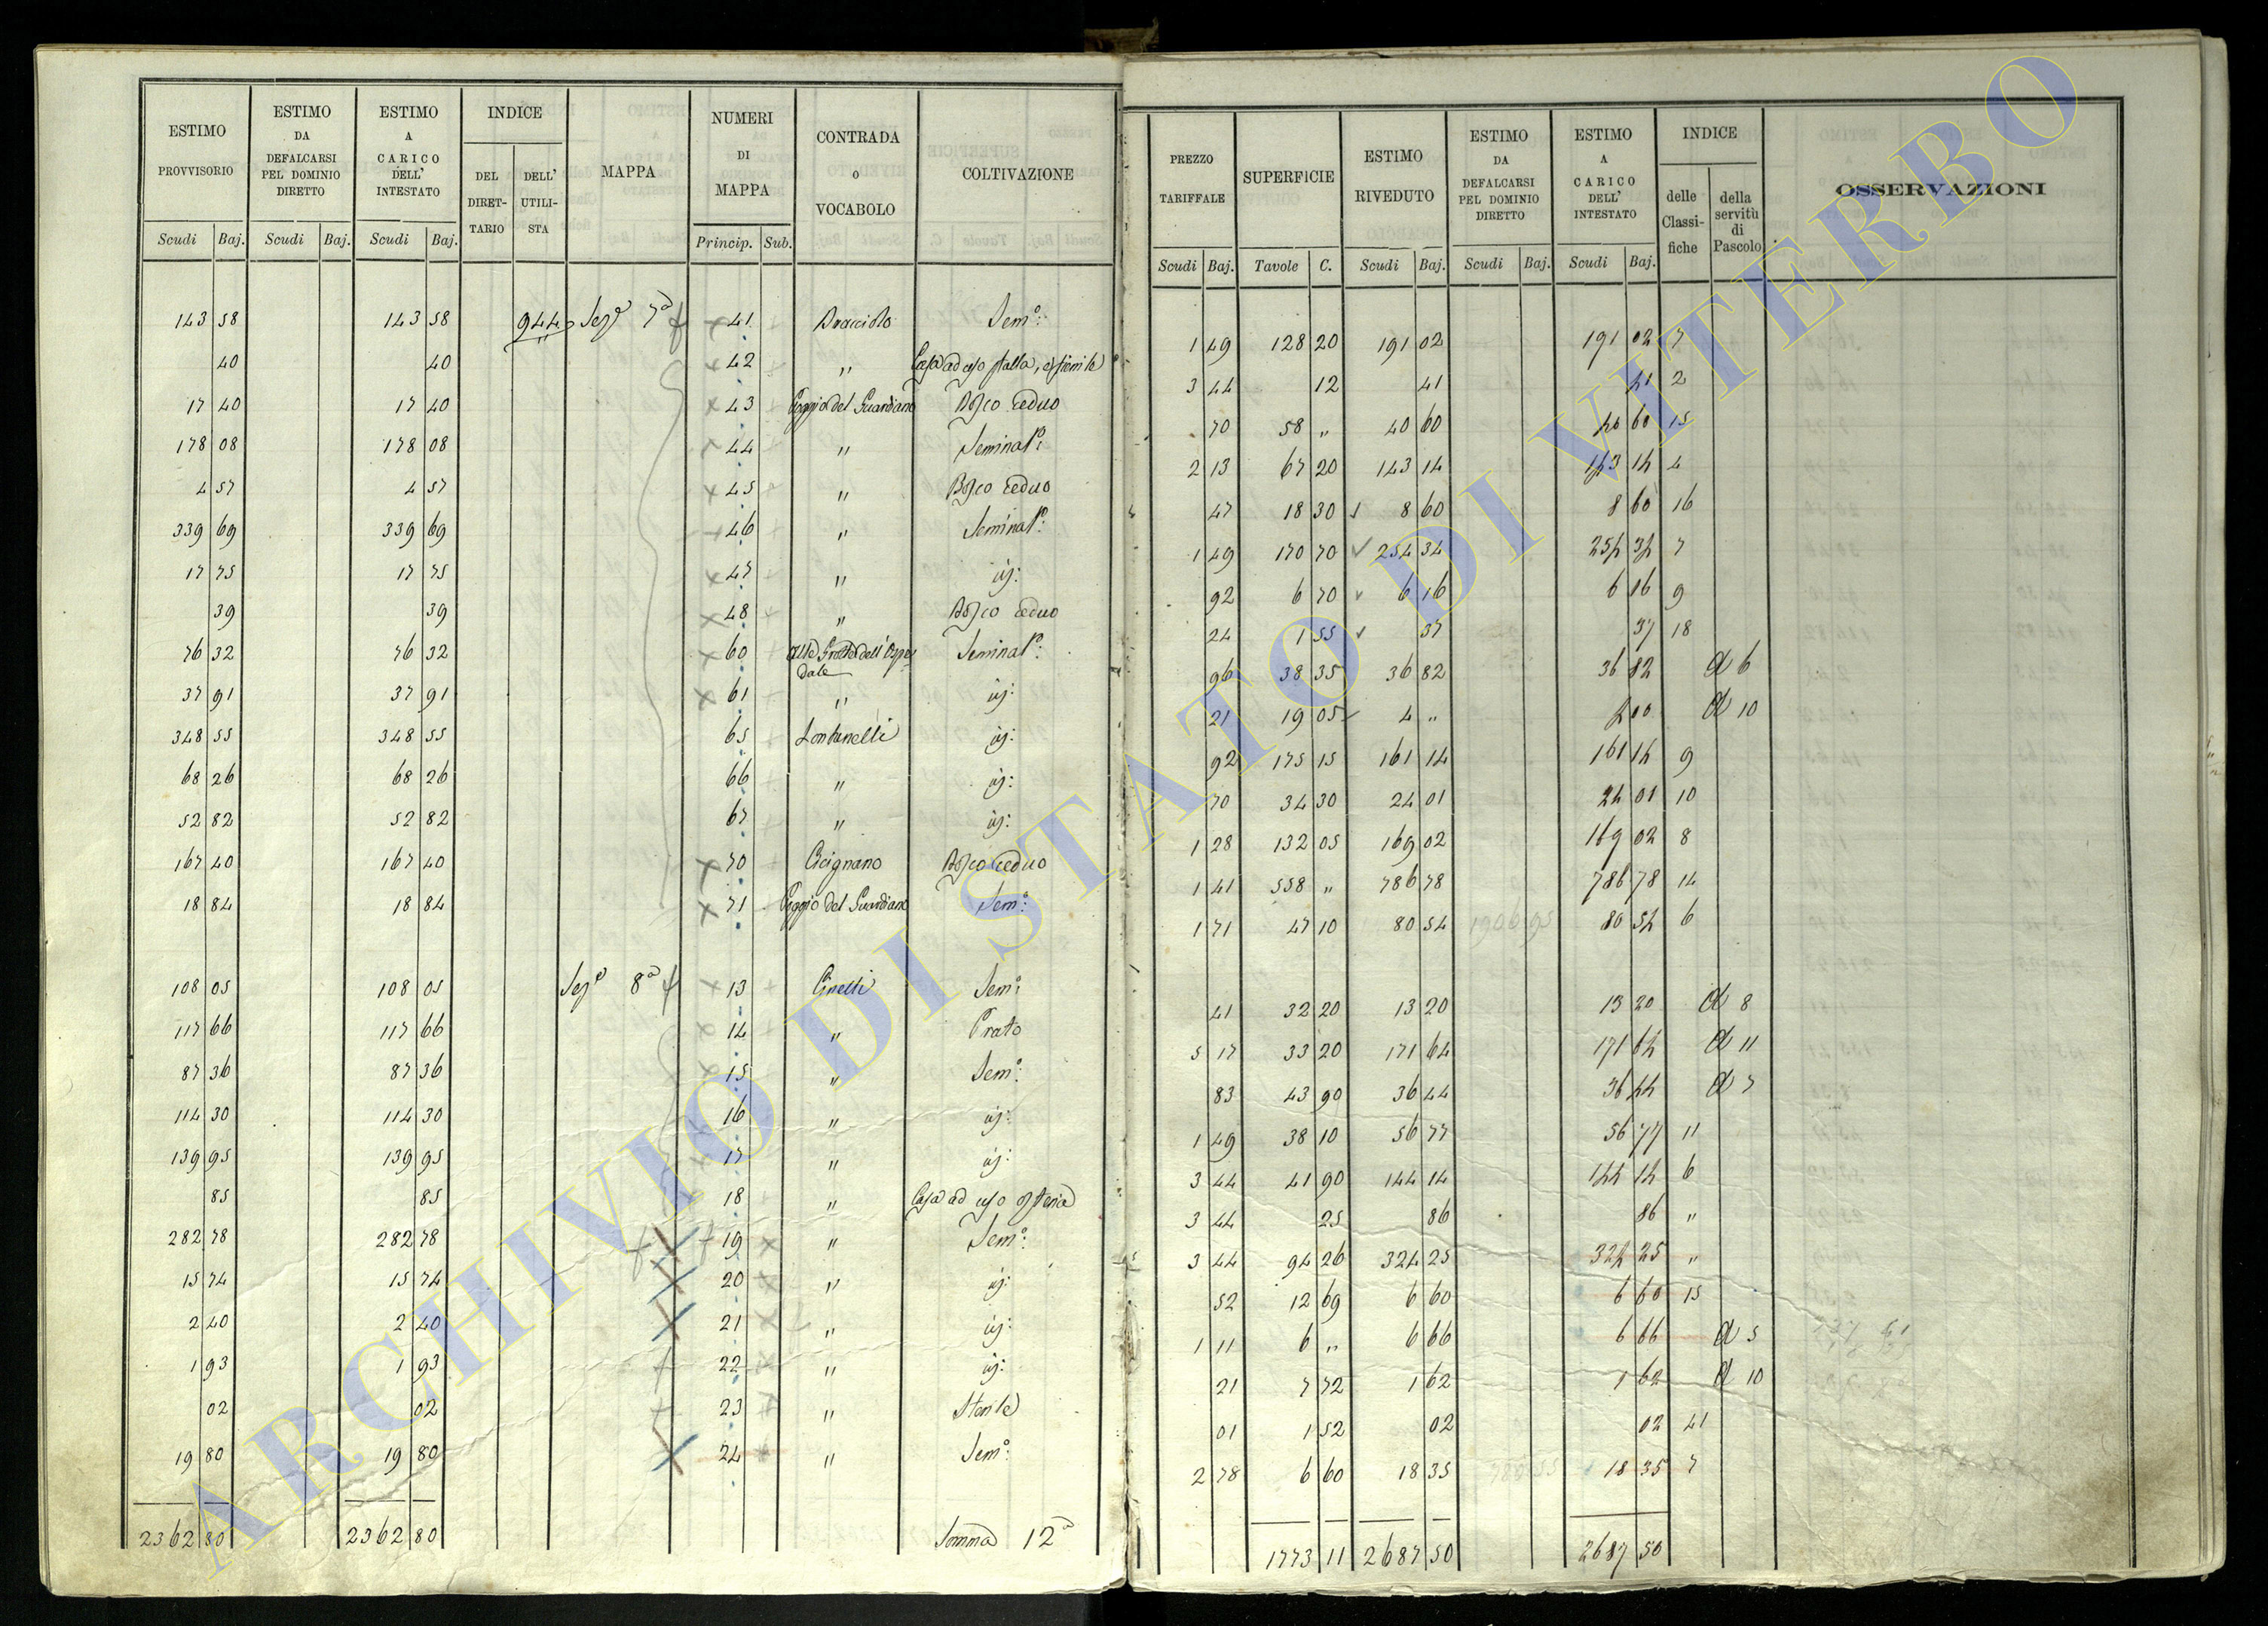 ESTIMO PROVVISORIO | ESTIMO DA DEFALCARSI PEL DOMINIO DIRETTO | ESTIMO A CARICO DELL' INTESTATO | INDICE DEL DIRET-TARIO | DELL' UTILI-STA | MAPPA | NUMERI DI MAPPA | CONTRADA O VOCABOLO | COLTIVAZIONE
Scudi Baj. | Scudi Baj. | Scudi Baj. | Princip. Sub.
143 58 | 143 58 | 944 | Sezᵉ 7ª | 41 | Bracciolo | Semº:
40 | 40 | 42 | " | Casa ad uso stalla, e fienile
17 40 | 17 40 | 43 | Poggio del Guardiano | Bosco Ceduo
178 08 | 178 08 | 44 | " | Seminatº:
4 57 | 4 57 | 45 | " | Bosco Ceduo
339 69 | 339 69 | 46 | " | Seminatº:
17 75 | 17 75 | 47 | " | id:
39 | 39 | 48 | " | Bosco Ceduo
76 32 | 76 32 | 60 | Alle Grotte dell'Ospe dale | Seminatº:
37 91 | 37 91 | 61 | " | id:
348 55 | 348 55 | 65 | Lontanelli | id:
68 26 | 68 26 | 66 | " | id:
52 82 | 52 82 | 67 | " | id:
167 40 | 167 40 | 70 | Cicignano | Bosco Ceduo
18 84 | 18 84 | 71 | Poggio del Guardiano | Semº:
108 05 | 108 05 | Sezᵉ 8ª | 13 | Cinelli | Semº:
117 66 | 117 66 | 14 | " | Prato
87 36 | 87 36 | 15 | " | Semº:
114 30 | 114 30 | 16 | " | id:
139 95 | 139 95 | 17 | " | id:
85 | 85 | 18 | " | Casa ad uso osteria
282 78 | 282 78 | 19 | " | Semº:
15 74 | 15 74 | 20 | " | id:
2 40 | 2 40 | 21 | " | id:
1 93 | 1 93 | 22 | " | id:
02 | 02 | 23 | " | Sterile
19 80 | 19 80 | 24 | " | Semº:
2362 80 | 2362 80 | Somma 12ª
PREZZO TARIFFALE | SUPERFICIE | ESTIMO RIVEDUTO | ESTIMO DA DEFALCARSI PEL DOMINIO DIRETTO | ESTIMO A CARICO DELL' INTESTATO | INDICE delle Classi-fiche | della servitù di Pascolo | OSSERVAZIONI
Scudi Baj. | Tavole C. | Scudi Baj. | Scudi Baj. | Scudi Baj.
1 49 | 128 20 | 191 02 | 191 02 | 7
3 44 | 12 | 41 | 41 | 2
70 | 58 " | 40 60 | 40 60 | 15
2 13 | 67 20 | 143 14 | 143 14 | 4
47 | 18 30 | 8 60 | 8 60 | 16
1 49 | 170 70 | 254 34 | 254 34 | 7
92 | 6 70 | 6 16 | 6 16 | 9
24 | 1 55 | 37 | 37 | 18
96 | 38 35 | 36 82 | 36 82 | d 6
21 | 19 05 | 4 " | 4 00 | d 10
92 | 175 15 | 161 14 | 161 14 | 9
70 | 34 30 | 24 01 | 24 01 | 10
1 28 | 132 05 | 169 02 | 169 02 | 8
1 41 | 558 " | 786 78 | 786 78 | 14
1 71 | 47 10 | 80 54 | 1906 95 | 80 54 | 6
41 | 32 20 | 13 20 | 13 20 | d 8
5 17 | 33 20 | 171 64 | 171 64 | d 11
83 | 43 90 | 36 44 | 36 44 | d 7
1 49 | 38 10 | 56 77 | 56 77 | 11
3 44 | 41 90 | 144 14 | 144 14 | 6
3 44 | 25 | 86 | 86 | "
3 44 | 94 26 | 324 25 | 324 25 | "
52 | 12 69 | 6 60 | 6 60 | 15
1 11 | 6 " | 6 66 | 6 66 | d 5
21 | 7 72 | 1 62 | 1 62 | d 10
01 | 1 52 | 02 | 02 | 41
2 78 | 6 60 | 18 35 | 780 55 | 18 35 | 7
1773 11 | 2687 50 | 2687 50
ARCHIVIO DI STATO DI VITERBO